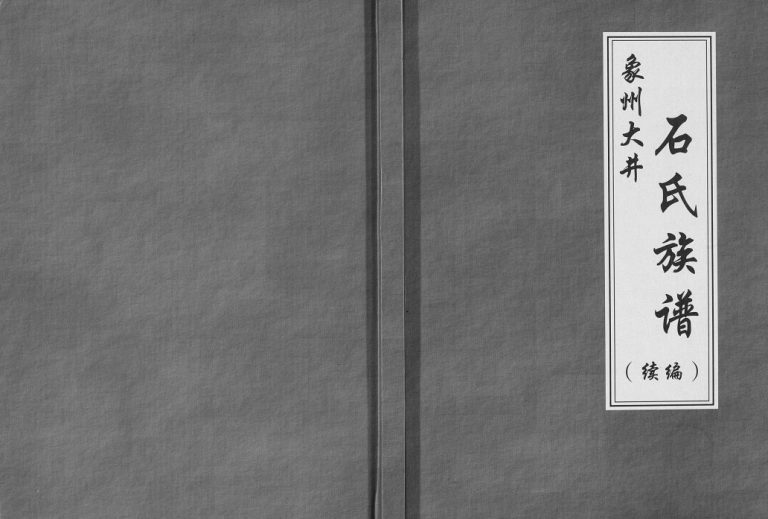 象州大井
石氏族谱
（续编）